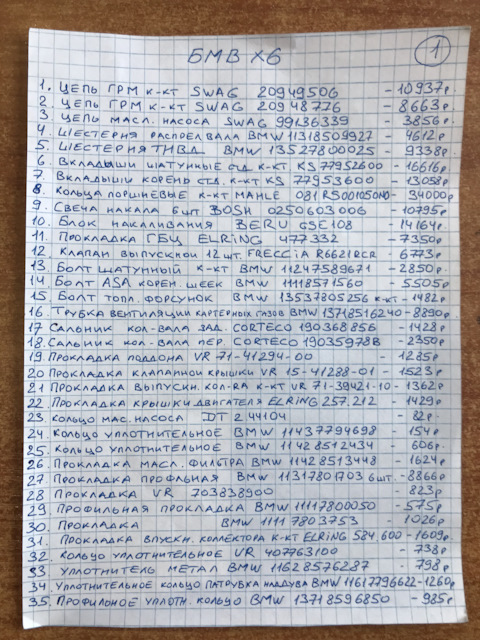 БМВ Х6
1
1. ЦЕПЬ ГРМ К-КТ SWAG 20949506 - 10937р
2. ЦЕПЬ ГРМ К-КТ SWAG 20948776 - 8663р
3 ЦЕПЬ МАСЛ. НАСОСА SWAG 99136339 - 3856р
4. ШЕСТЕРНЯ РАСПРЕДВАЛА BMW 11318509927 - 4612р
5. ШЕСТЕРНЯ ТНВД BMW 13527800025 - 9338р.
6. ВКЛАДЫШИ ШАТУННЫЕ СТД К-КТ KS 77952600 - 16616р
7. ВКЛАДЫШИ КОРЕНН СТД. К-КТ KS 77953600 - 13058р
8. КОЛЬЦА ПОРШНЕВЫЕ К-КТ MAHLE 081RS001050N0 - 34000р
9. СВЕЧА НАКАЛА 6 шт BOSH 0250603006 - 10795р
10. БЛОК НАКАЛИВАНИЯ BERU GSE108 14164р
11. ПРОКЛАДКА ГБЦ ELRING 477332 - 7350р
12. КЛАПАН ВЫПУСКНОЙ 12 шт. FRECCIA R6621RCR - 6773р
13. БОЛТ ШАТУННЫЙ К-КТ BMW 11247589671 - 2850р.
14. БОЛТ ASA КОРЕН. ШЕЕК BMW 11118571560 - 5505р
15. БОЛТ ТОПЛ. ФОРСУНОК BMW 13537805256 К-КТ - 1482р
16. ТРУБКА ВЕНТИЛЯЦИИ КАРТЕРНЫХ ГАЗОВ BMW 13718516240 - 8890р.
17 САЛЬНИК КОЛ-ВАЛА ЗАД. CORTECO 190368856 - 1428р
18. САЛЬНИК КОЛ-ВАЛА ПЕР. CORTECO 19035978B - 2350р
19. ПРОКЛАДКА ПОДДОНА VR 71-41294-00 - 1285р
20 ПРОКЛАДКА КЛАПАННОЙ КРЫШКИ VR 15-41288-01 - 1523р
21 ПРОКЛАДКА ВЫПУСКН. КОЛ-РА К-КТ VR 71-39421-10 - 1362р
22. ПРОКЛАДКА КРЫШКИ ДВИГАТЕЛЯ ELRING 257.212 - 1429р
23. КОЛЬЦО МАС. НАСОСА DT 2 44104 - 82р.
24. КОЛЬЦО УПЛОТНИТЕЛЬНОЕ BMW 11437794698 - 154р
25. КОЛЬЦО УПЛОТНИТЕЛЬНОЕ BMW 11428512434 - 606р.
26 ПРОКЛАДКА МАСЛ. ФИЛЬТРА BMW 11428513448 - 1624р
27 ПРОКЛАДКА ПРОФЛЬНАЯ BMW 11317801703 6шт. - 8866р
28 ПРОКЛАДКА VR 703838900 - 823р
29 ПРОФИЛЬНАЯ ПРОКЛАДКА BMW 11117800050 - 575р
30. ПРОКЛАДКА BMW 11117803753 - 1026р
31. ПРОКЛАДКА ВПУСКН. КОЛЛЕКТОРА К-КТ ELRING 584.600 - 1609р.
32. КОЛЬЦО УПЛОТНИТЕЛЬНОЕ VR 407763100 - 738р
33 УПЛОТНИТЕЛЬ МЕТАЛ BMW 11628576287 - 798р
34 УПЛОТНИТЕЛЬНОЕ КОЛЬЦО ПАТРУБКА НАДДУВА BMW 11617796622 - 1260р
35. ПРОФИЛЬНОЕ УПЛОТН. КОЛЬЦО BMW 13718596850 - 985р